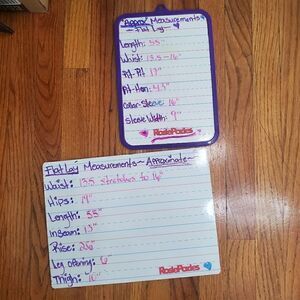 *Approx* Measurements
~ Flat Lay ~
Length: 55"
Waist: 13.5-16"
Pit-Pit 17"
Collar Sleeve 16"
Sleeve Width: 9"
RosiePosies
Flat Lay Measurements ~ Approximate ~
Waist: 13.5 stretches to 16"
Hips: 19"
Length: 55"
Inseam: 13"
Rise: 26"
Leg Opening: 6"
Thigh: 10"
RosiePosies